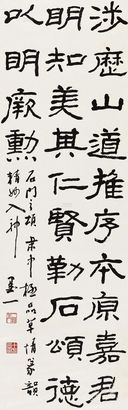 涉歷山道推序本原嘉君
明知美其仁賢勒石頌德
以明厥勳
石門之頌隶中極品草情篆韻
精妙入神